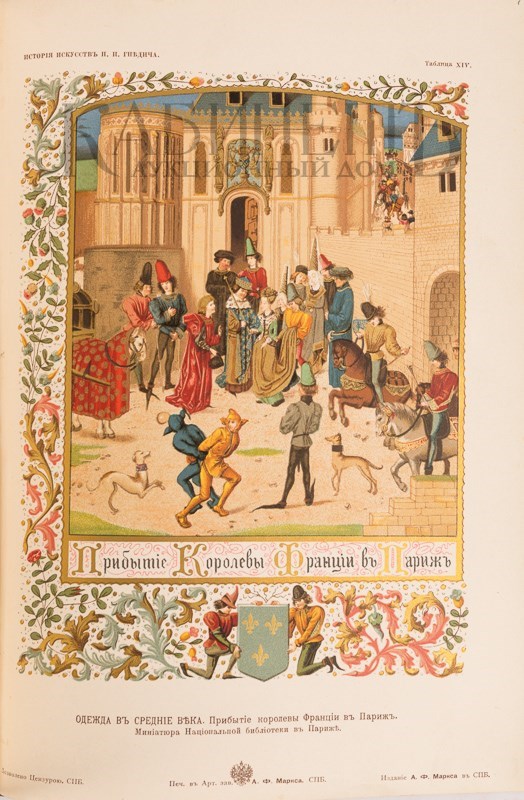 ИСТОРІЯ ИСКУССТВЪ П. П. ГНѢДИЧА.
Таблица XIV.
АУКЦИОННЫЙ ДОМ
Прибытіе Королевы Франціи въ Парижъ
ОДЕЖДА ВЪ СРЕДНІЕ ВѢКА. Прибытіе королевы Франціи въ Парижъ.
Миніатюра Національной библіотеки въ Парижѣ.
Дозволено Цензурою, СПБ.
Печ. въ Арт. зав. А. Ф. Маркса, СПБ.
Изданіе А. Ф. Маркса въ СПБ.